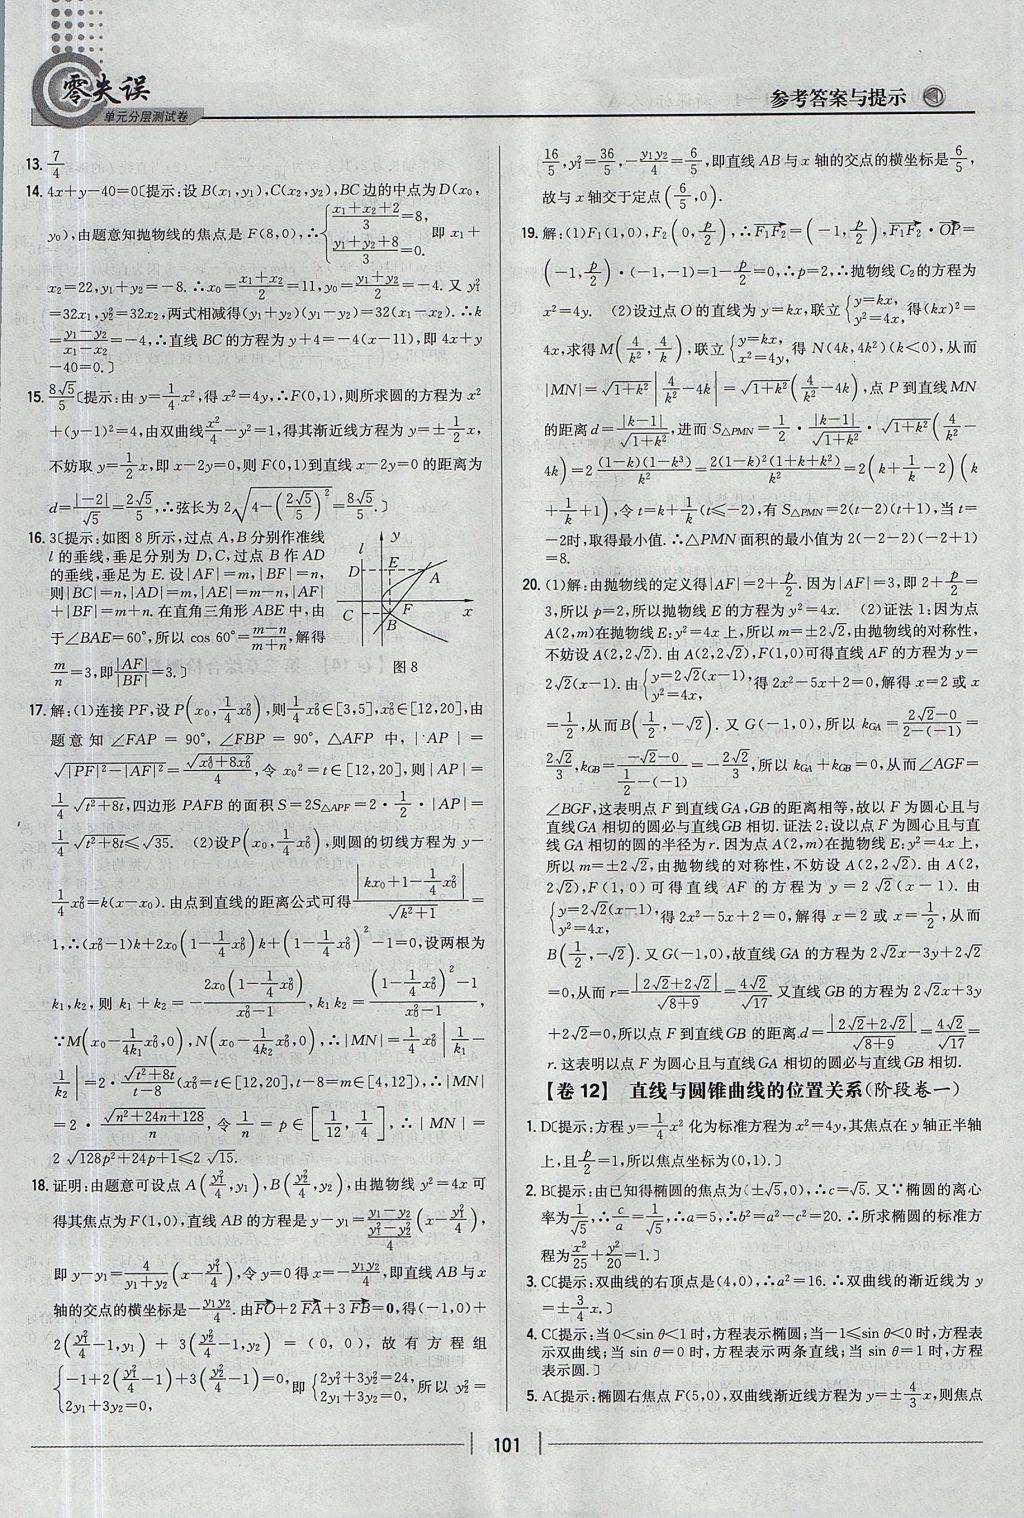 零失误
单元分层测试卷
参考答案与提示
13. 7/4
14. 4x+y-40=0〔提示:设B(x₁,y₁),C(x₂,y₂),BC边的中点为D(x₀,
y₀),由题意知抛物线的焦点是F(8,0),∴{(x₁+x₂+2)/3=8, (y₁+y₂+8)/3=0. 即 x₁+
x₂=22,y₁+y₂=-8.∴x₀=(x₁+x₂)/2=11,y₀=(y₁+y₂)/2=-4.又y₁²
=32x₁,y₂²=32x₂,两式相减得(y₁+y₂)(y₁-y₂)=32(x₁-x₂).∴k
=(y₁-y₂)/(x₁-x₂)=-4,∴直线BC的方程为y+4=-4(x-11),即4x+y
-40=0.〕
15. 8√5/5〔提示:由y=1/4x²,得x²=4y,∴F(0,1),则所求圆的方程为x²
+(y-1)²=4,由双曲线x²/4-y²=1,得其渐近线方程为y=±1/2x,
不妨取y=1/2x,即x-2y=0,则F(0,1)到直线x-2y=0的距离为
d=|-2|/√5=2√5/5,∴弦长为2√(4-(2√5/5)²)=8√5/5.〕
16. 3〔提示:如图8所示,过点A,B分别作准线
l的垂线,垂足分别为D,C,过点B作AD
的垂线,垂足为E.设|AF|=m,|BF|=n,
则|BC|=n,|AD|=m,|AE|=m-n,|AF|
+|BF|=m+n.在直角三角形ABE中,由
于∠BAE=60°,所以cos 60°=(m-n)/(m+n),解得
m/n=3,即|AF|/|BF|=3.〕
l y D E A C B F x
图8
17. 解:(1)连接PF,设P(x₀,1/4x₀²),则1/4x₀²∈[3,5],x₀²∈[12,20],由
题意知∠FAP=90°,∠FBP=90°,△AFP中,|AP|=
√(|PF|²-|AF|²)=√(x₀⁴+8x₀²)/4,令x₀²=t∈[12,20],则|AP|=
1/4√(t²+8t),四边形PAFB的面积S=2S△APF=2·1/2·|AP|=
1/4√(t²+8t)≤√35. (2)设P(x₀,1/4x₀²),则圆的切线方程为y-
1/4x₀²=k(x-x₀).由点到直线的距离公式可得|kx₀+1-1/4x₀²|/√(k²+1)=
1,∴(x₀²-1)k+2x₀(1-1/4x₀²)k+(1-1/4x₀²)²-1=0,设两根为
k₁,k₂,则k₁+k₂=-2x₀(1-1/4x₀²)/(x₀²-1),k₁k₂=((1-1/4x₀²)²-1)/(x₀²-1),
∵M(x₀-1/(4k₁)x₀²,0),N(x₀-1/(4k₂)x₀²,0),∴|MN|=1/4x₀²|1/k₁-
1/k₂|=2·√(t²+8t)/(t-8)(x₀²=t∈[12,20],t-8=m∈[4,12]),∴|MN|
=2·√(n²+24n+128)/n,令1/n=p∈[1/12,1/4],∴|MN|=
2√(128p²+24p+1)≤2√15.
18. 证明:由题意可设点A(y₁²/4,y₁),B(y₂²/4,y₂),由抛物线y²=4x可
得其焦点为F(1,0),直线AB的方程是y-y₁=(y₁-y₂)/(y₁²/4-y₂²/4)(x-y₁²/4),
即y-y₁=4/(y₁+y₂)(x-y₁²/4),令y=0得x=-y₁y₂/4,即直线AB与x
轴的交点的横坐标是-y₁y₂/4.由FO+2FA+3FB=0,得(-1,0)+
2(y₁²/4-1,y₁)+3(y₂²/4-1,y₂)=(0,0),故有方程组
{-1+2(y₁²/4-1)+3(y₂²/4-1)=0, 2y₁+3y₂=0, 即{2y₁²+3y₂²=24, 2y₁+3y₂=0, 所以y₂²=
16/5,y₁²=36/5,-y₁y₂/4=6/5,即直线AB与x轴的交点的横坐标是6/5,
故与x轴交于定点(6/5,0).
19. 解:(1)F₁(1,0),F₂(0,p/2),∴F₁F₂=(-1,p/2),F₁F₂·OP=
(-1,p/2)·(-1,-1)=1-p/2=0,∴p=2,∴抛物线C₂的方程为
x²=4y. (2)设过点O的直线为y=kx,联立{y=kx, y²=4x,得(kx)²=
4x,求得M(4/k²,4/k),联立{y=kx, x²=4y,得N(4k,4k²)(k<0),从而
|MN|=√(1+k²)|4/k²-4k|=√(1+k²)(4/k²-4k),点P到直线MN
的距离d=|k-1|/√(1+k²),进而S△PMN=1/2·|k-1|/√(1+k²)·√(1+k²)(4/k²-
4k)=2(1-k)(1-k³)/k²=2(1-k)²(1+k+k²)/k²=2(k+1/k-2)(k
+1/k+1),令t=k+1/k(t≤-2),有S△PMN=2(t-2)(t+1),当t=
-2时,取得最小值.∴△PMN面积的最小值为2(-2-2)(-2+1)
=8.
20. (1)解:由抛物线的定义得|AF|=2+p/2.因为|AF|=3,即2+p/2=
3,所以p=2,所以抛物线E的方程为y²=4x. (2)证法1:因为点
A(2,m)在抛物线E:y²=4x上,所以m=±2√2,由抛物线的对称性,
不妨设A(2,2√2).由A(2,2√2),F(1,0)可得直线AF的方程为y=
2√2(x-1).由{y=2√2(x-1), y²=4x,得2x²-5x+2=0,解得x=2或x
=1/2,从而B(1/2,-√2).又G(-1,0),所以k_GA=(2√2-0)/(2-(-1))=
2√2/3,k_GB=(-√2-0)/(1/2-(-1))=-2√2/3,所以k_GA+k_GB=0,从而∠AGF=
∠BGF,这表明点F到直线GA,GB的距离相等,故以F为圆心且与
直线GA相切的圆必与直线GB相切.证法2:设以点F为圆心且与直
线GA相切的圆的半径为r.因为点A(2,m)在抛物线E:y²=4x上,
所以m=±2√2,由抛物线的对称性,不妨设A(2,2√2).由A(2,
2√2),F(1,0)可得直线AF的方程为y=2√2(x-1).由
{y=2√2(x-1), y²=4x,得2x²-5x+2=0,解得x=2或x=1/2,从而
B(1/2,-√2).又G(-1,0),故直线GA的方程为2√2x-3y+2√2
=0,从而r=|2√2+2√2|/√(8+9)=4√2/√17.又直线GB的方程为2√2x+3y
+2√2=0,所以点F到直线GB的距离d=|2√2+2√2|/√(8+9)=4√2/√17=
r.这表明以点F为圆心且与直线GA相切的圆必与直线GB相切.
【卷12】 直线与圆锥曲线的位置关系(阶段卷一)
1. D〔提示:方程y=1/4x²化为标准方程为x²=4y,其焦点在y轴正半轴
上,且p/2=1,所以焦点坐标为(0,1).〕
2. B〔提示:由已知得椭圆的焦点为(±√5,0),∴c=√5.又∵椭圆的离心
率为1/√5,∴c/a=1/√5,∴a=5,∴b²=a²-c²=20.∴所求椭圆的标准方
程为x²/25+y²/20=1.〕
3. C〔提示:双曲线的右顶点是(4,0),∴a²=16.∴双曲线的渐近线为y
=±3/4x.〕
4. C〔提示:当0<sin θ<1时,方程表示椭圆;当-1≤sin θ<0时,方程表
示双曲线;当sin θ=0时,方程表示两条直线;当sin θ=1时,方程
表示圆.〕
5. A〔提示:椭圆右焦点F(5,0),双曲线渐近线方程为y=±4/3x,则焦点
101